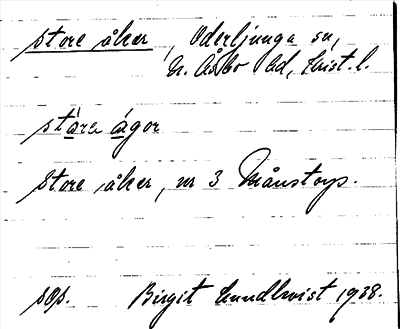 store åker, Oderljunga sn,
N. Åsbo hd, Krist. l.
stǻra ágor
Store åker, nr 3 Månstorp.
sOp. Birgit Lundkvist 1938.